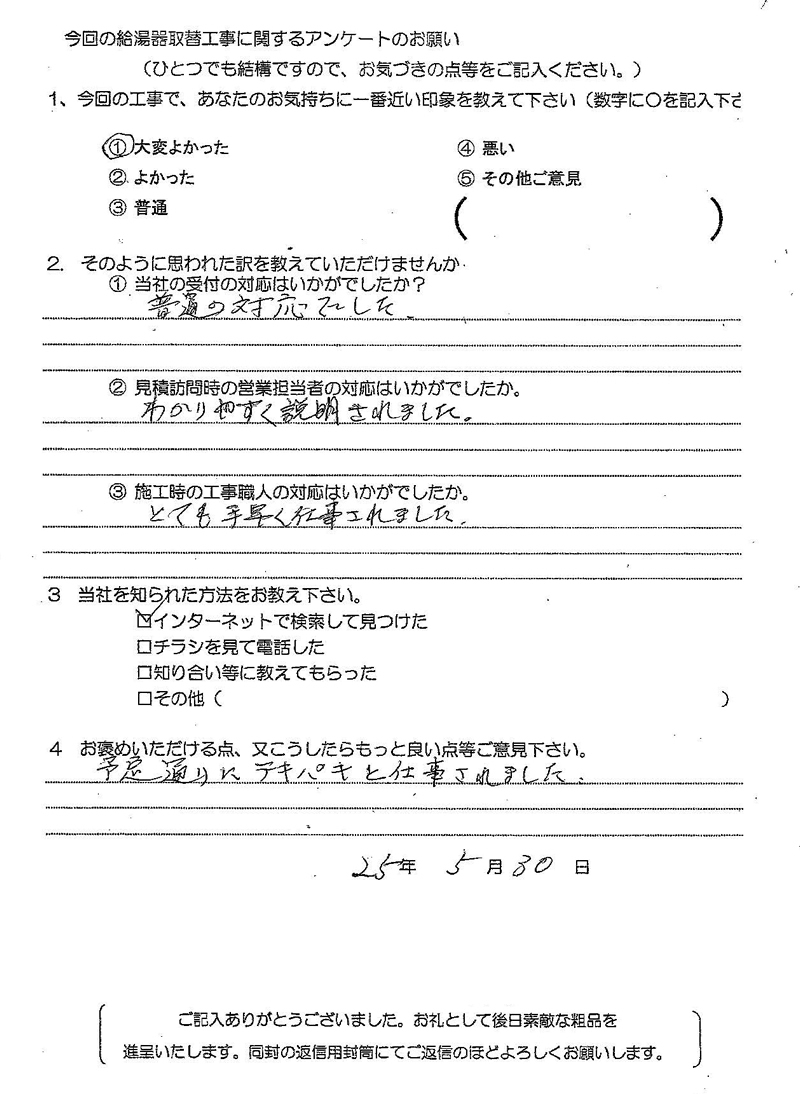 今回の給湯器取替工事に関するアンケートのお願い
（ひとつでも結構ですので、お気づきの点等をご記入ください。）
1、今回の工事で、あなたのお気持ちに一番近い印象を教えて下さい（数字に〇を記入下さ
① 大変よかった
② よかった
③ 普通
④ 悪い
⑤ その他ご意見
（ ）
2. そのように思われた訳を教えていただけませんか
① 当社の受付の対応はいかがでしたか？
普通の対応でした.
② 見積訪問時の営業担当者の対応はいかがでしたか。
わかりやすく説明されました。
③ 施工時の工事職人の対応はいかがでしたか。
とても手早く仕事されました.
3 当社を知られた方法をお教え下さい。
☑インターネットで検索して見つけた
□チラシを見て電話した
□知り合い等に教えてもらった
□その他（ ）
4 お褒めいただける点、又こうしたらもっと良い点等ご意見下さい。
予定通りにテキパキと仕事されました.
25年 5月 30日
ご記入ありがとうございました。お礼として後日素敵な粗品を
進呈いたします。同封の返信用封筒にてご返信のほどよろしくお願いします。